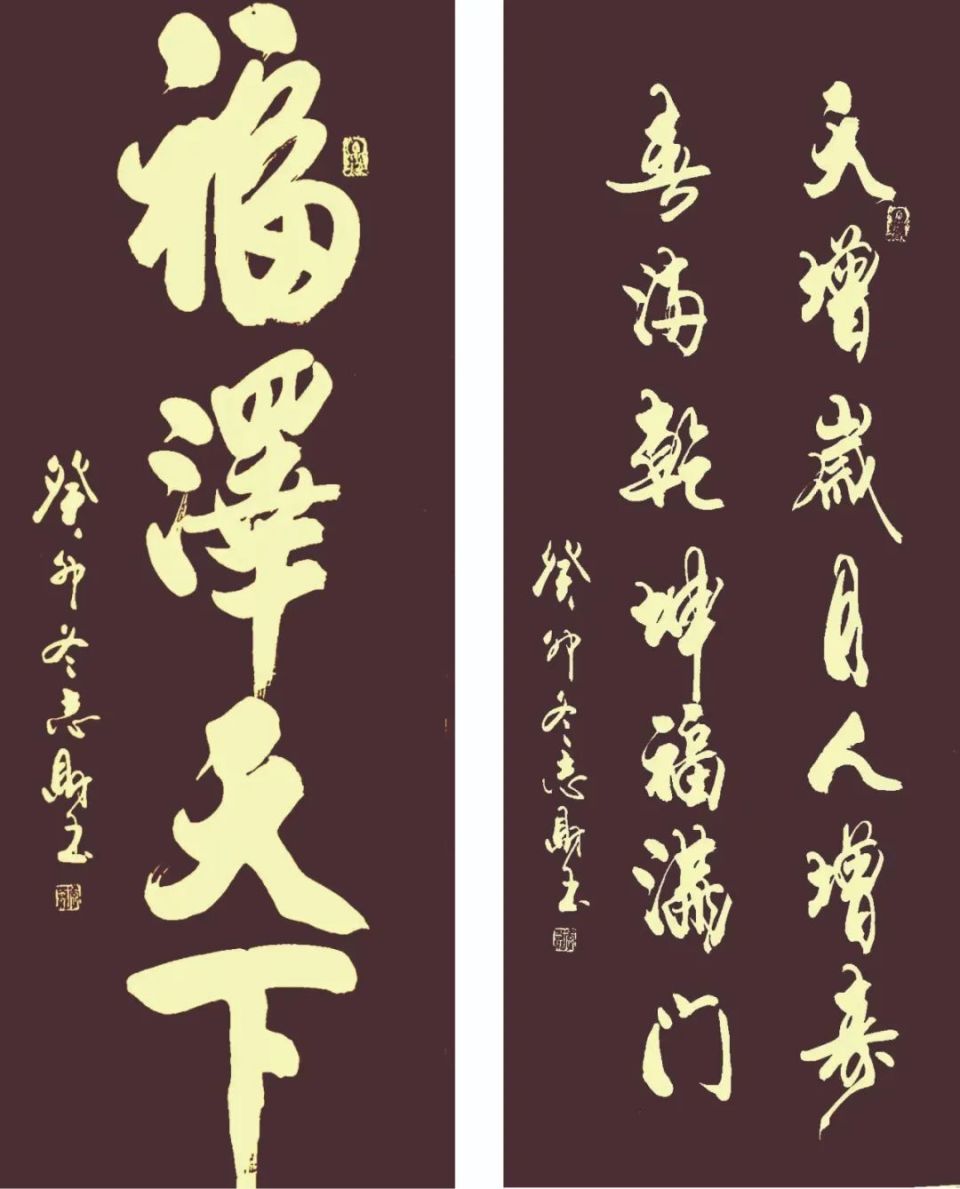 福澤天下
癸卯冬志財玉
天增歲月人增寿
春滿乾坤福滿门
癸卯冬志財玉